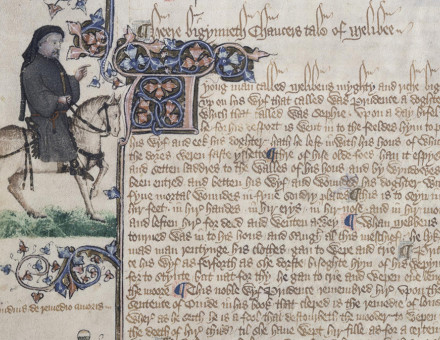 Heere bigynneth Chaucers tale of Melibee
yong man called Melibeus myghty and riche
up on his wyf that called was Prudence a doghter
Which that called was Sophie . Upon a day
he for his desport is went in to the feeldes hym to
his wyf and eek his doghter hath he left in with his hous of
the dores weren faste yshette / Thre of his olde foos han it
and setten laddres to the walles of his hous and by wyndowes
been entred and betten his wyf and wounded his doghter
fyve mortal woundes in fyve sondry places This is to seyn
hir feet . in hir handes in hir erys . in hir nose . and in hir
and leften hir for deed and wenten awey / Whan Melibeus
tourned was in to his hous and saugh al this meschief he
mad man rentynge his clothes gan to wepe and crie
his wyf as ferforth as she dorste bisoghte hym of his
for to stynte but nat for thy he gan to crie and wepen ever
the moore This noble wyf Prudence remembred hir upon the
sentence of Ovide in his book that cleped is the remedie of love
Wher as he seith he is a fool that destourbeth the mooder to wepen
the deeth of hir child til she have wept hir fille as for a
de remedio amoris